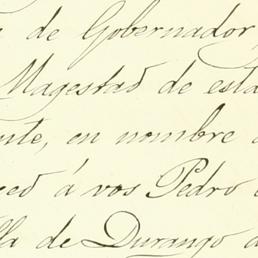 de Gobernador,
Magestad de esta
nte, en nombre
ced á vos Pedro
lla de Durango